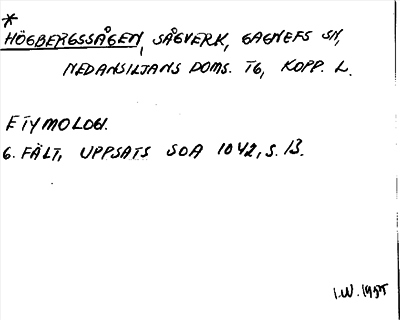 *
HÖGBERGSSÅGEN, SÅGVERK, GAGNEFS SN,
NEDANSILJANS DOMS. TG, KOPP. L.
ETYMOLOGI.
G. FÄLT, UPPSATS SOA 1042, S. 13.
I.W. 1985